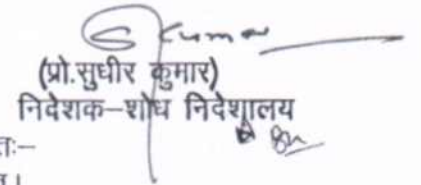 S Kumar
(प्रो.सुधीर कुमार)
निदेशक–शोध निदेशालय